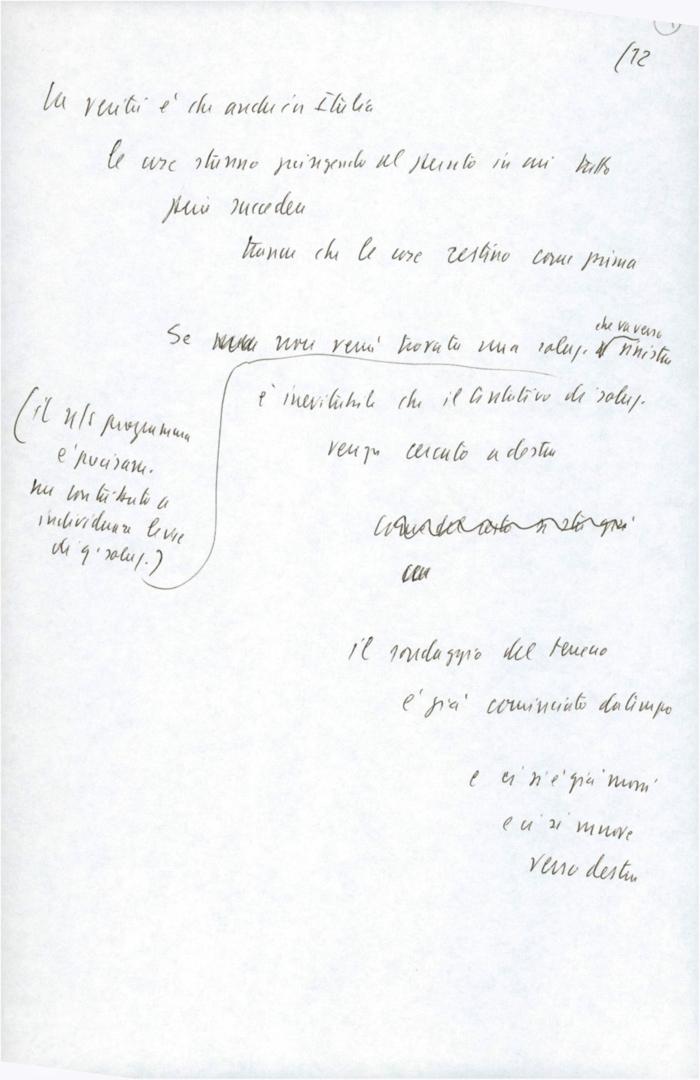 (12
La verità è che anche in Italia
le cose stanno giungendo al punto in cui tutto
può succedere
tranne che le cose restino come prima
che va verso
Se non verrà trovata una soluz. sinistra
è inevitabile che il tentativo di soluz.
venga cercato a destra
(il n/s programma
è precisam.
un contributo a
individuare linee
di q. soluz.)
il sondaggio del terreno
è già cominciato da tempo
e ci si è già mossi
e ci si muove
verso destra